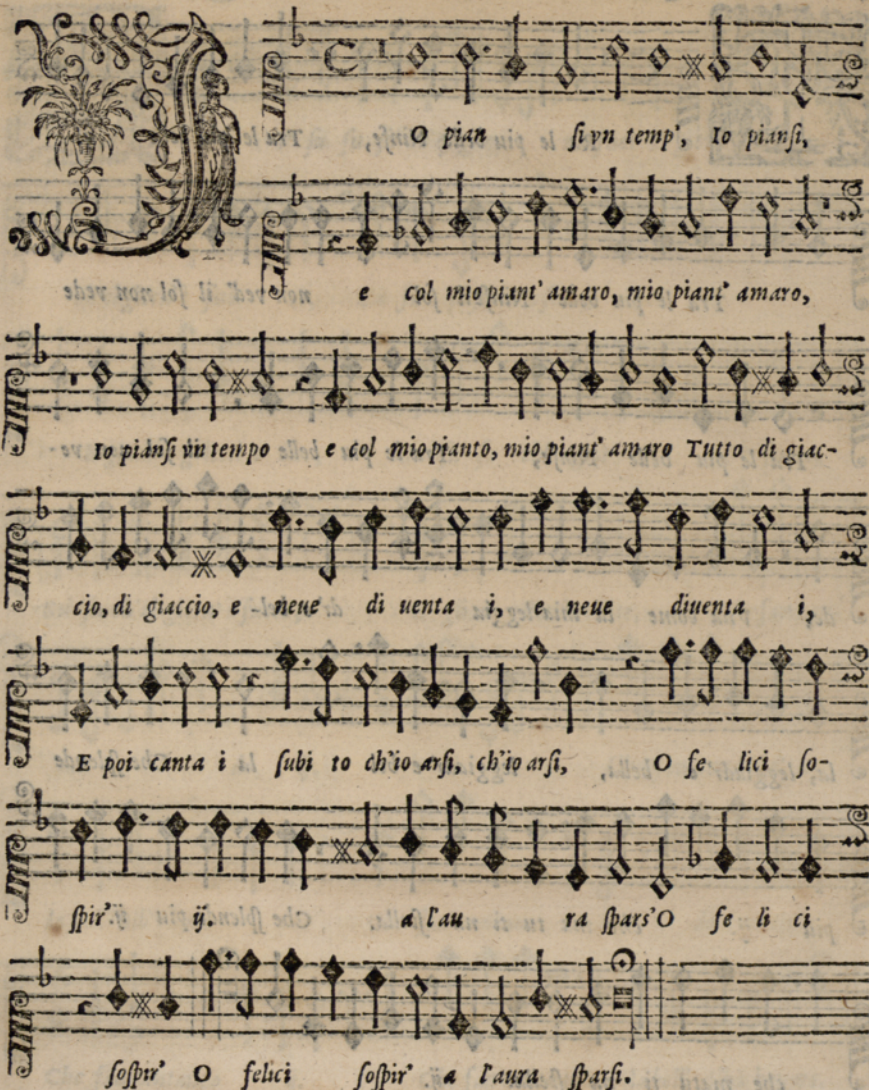 IO pian si vn temp', Io piansi,
e col mio piant' amaro, mio piant' amaro,
Io piansi vn tempo e col mio pianto, mio piant' amaro Tutto di giac-
cio, di giaccio, e neue di uenta i, e neue diuenta i,
E poi canta i subi to ch'io arsi, ch'io arsi, O fe lici so-
spir' ij. a l'au ra spars' O fe li ci
sospir' O felici sospir' a l'aura sparsi.